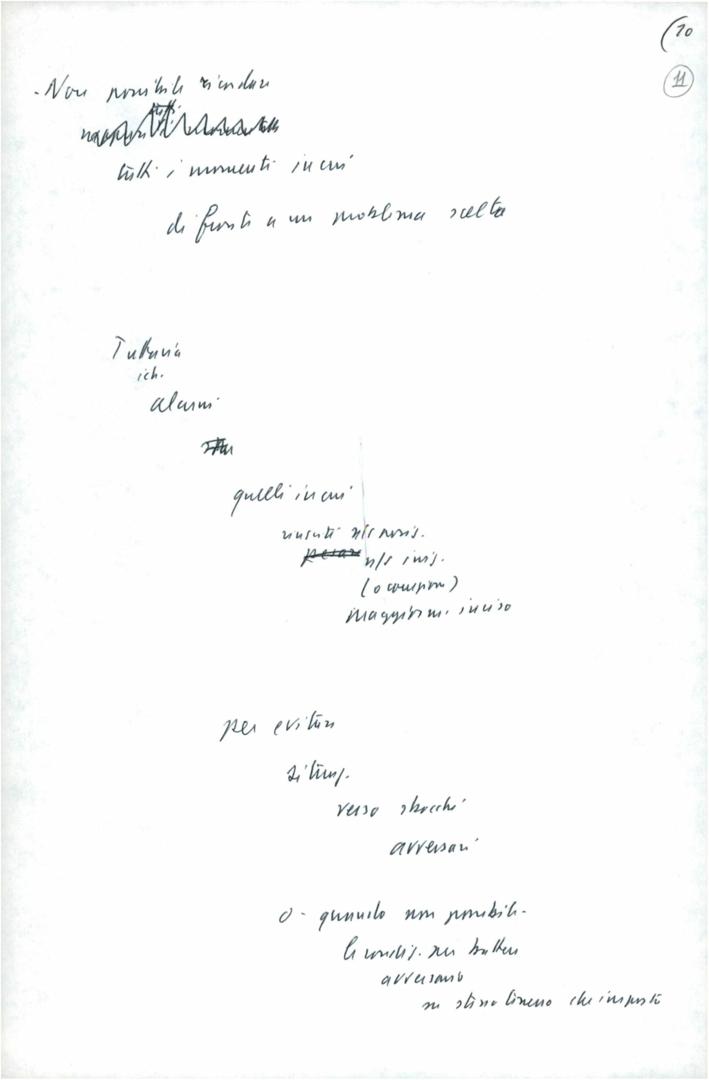 (10
11
- Non possibile ricordare
tutti i momenti in cui
di fronte a un problema scelta
Tuttavia
ich.
alcuni
quelli in cui
n/s posiz.
pesare n/s iniz.
(o
maggiorm. inciso
per evitare
situaz.
verso sbocchi
avversari
o - quando non possibile -
le condiz. per battere
avversario
su stesso terreno che imposto